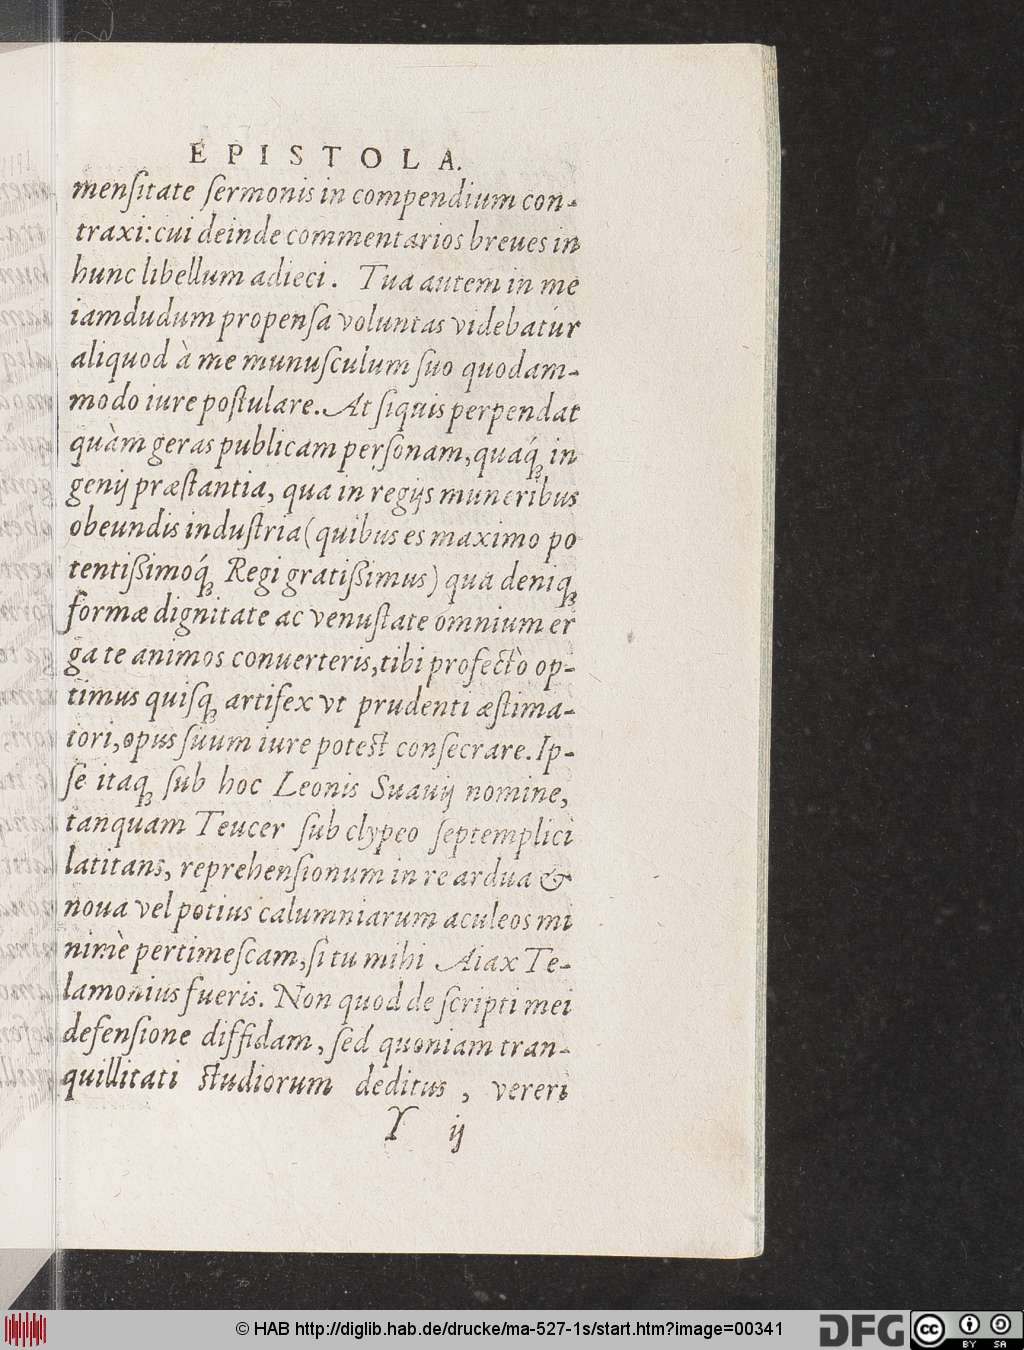 EPISTOLA.
menſitate ſermonis in compendium con-
traxi: cui deinde commentarios breues in
hunc libellum adieci. Tua autem in me
iamdudum propenſa voluntas videbatur
aliquod à me munuſculum ſuo quodam-
modo iure poſtulare. At ſiquis perpendat
quàm geras publicam perſonam, quaq́; in
genij præſtantia, qua in regijs muneribus
obeundis induſtria (quibus es maximo po
tentiſsimoq́; Regi gratiſsimus) qua deniq;
formæ dignitate ac venuſtate omnium er
ga te animos conuerteris, tibi profectò op-
timus quiſq; artifex vt prudenti æſtima-
tori, opus ſuum iure poteſt conſecrare. Ip-
ſe itaq; ſub hoc Leonis Suauij nomine,
tanquam Teucer ſub clypeo ſeptemplici
latitans, reprehenſionum in re ardua &
noua vel potius calumniarum aculeos mi
nimè pertimeſcam, ſi tu mihi Aiax Te-
lamonius fueris. Non quod de ſcripti mei
defenſione diffidam, ſed quoniam tran-
quillitati ſtudiorum deditus, vereri
Y ij
© HAB http://diglib.hab.de/drucke/ma-527-1s/start.htm?image=00341
DFG
cc
BY SA